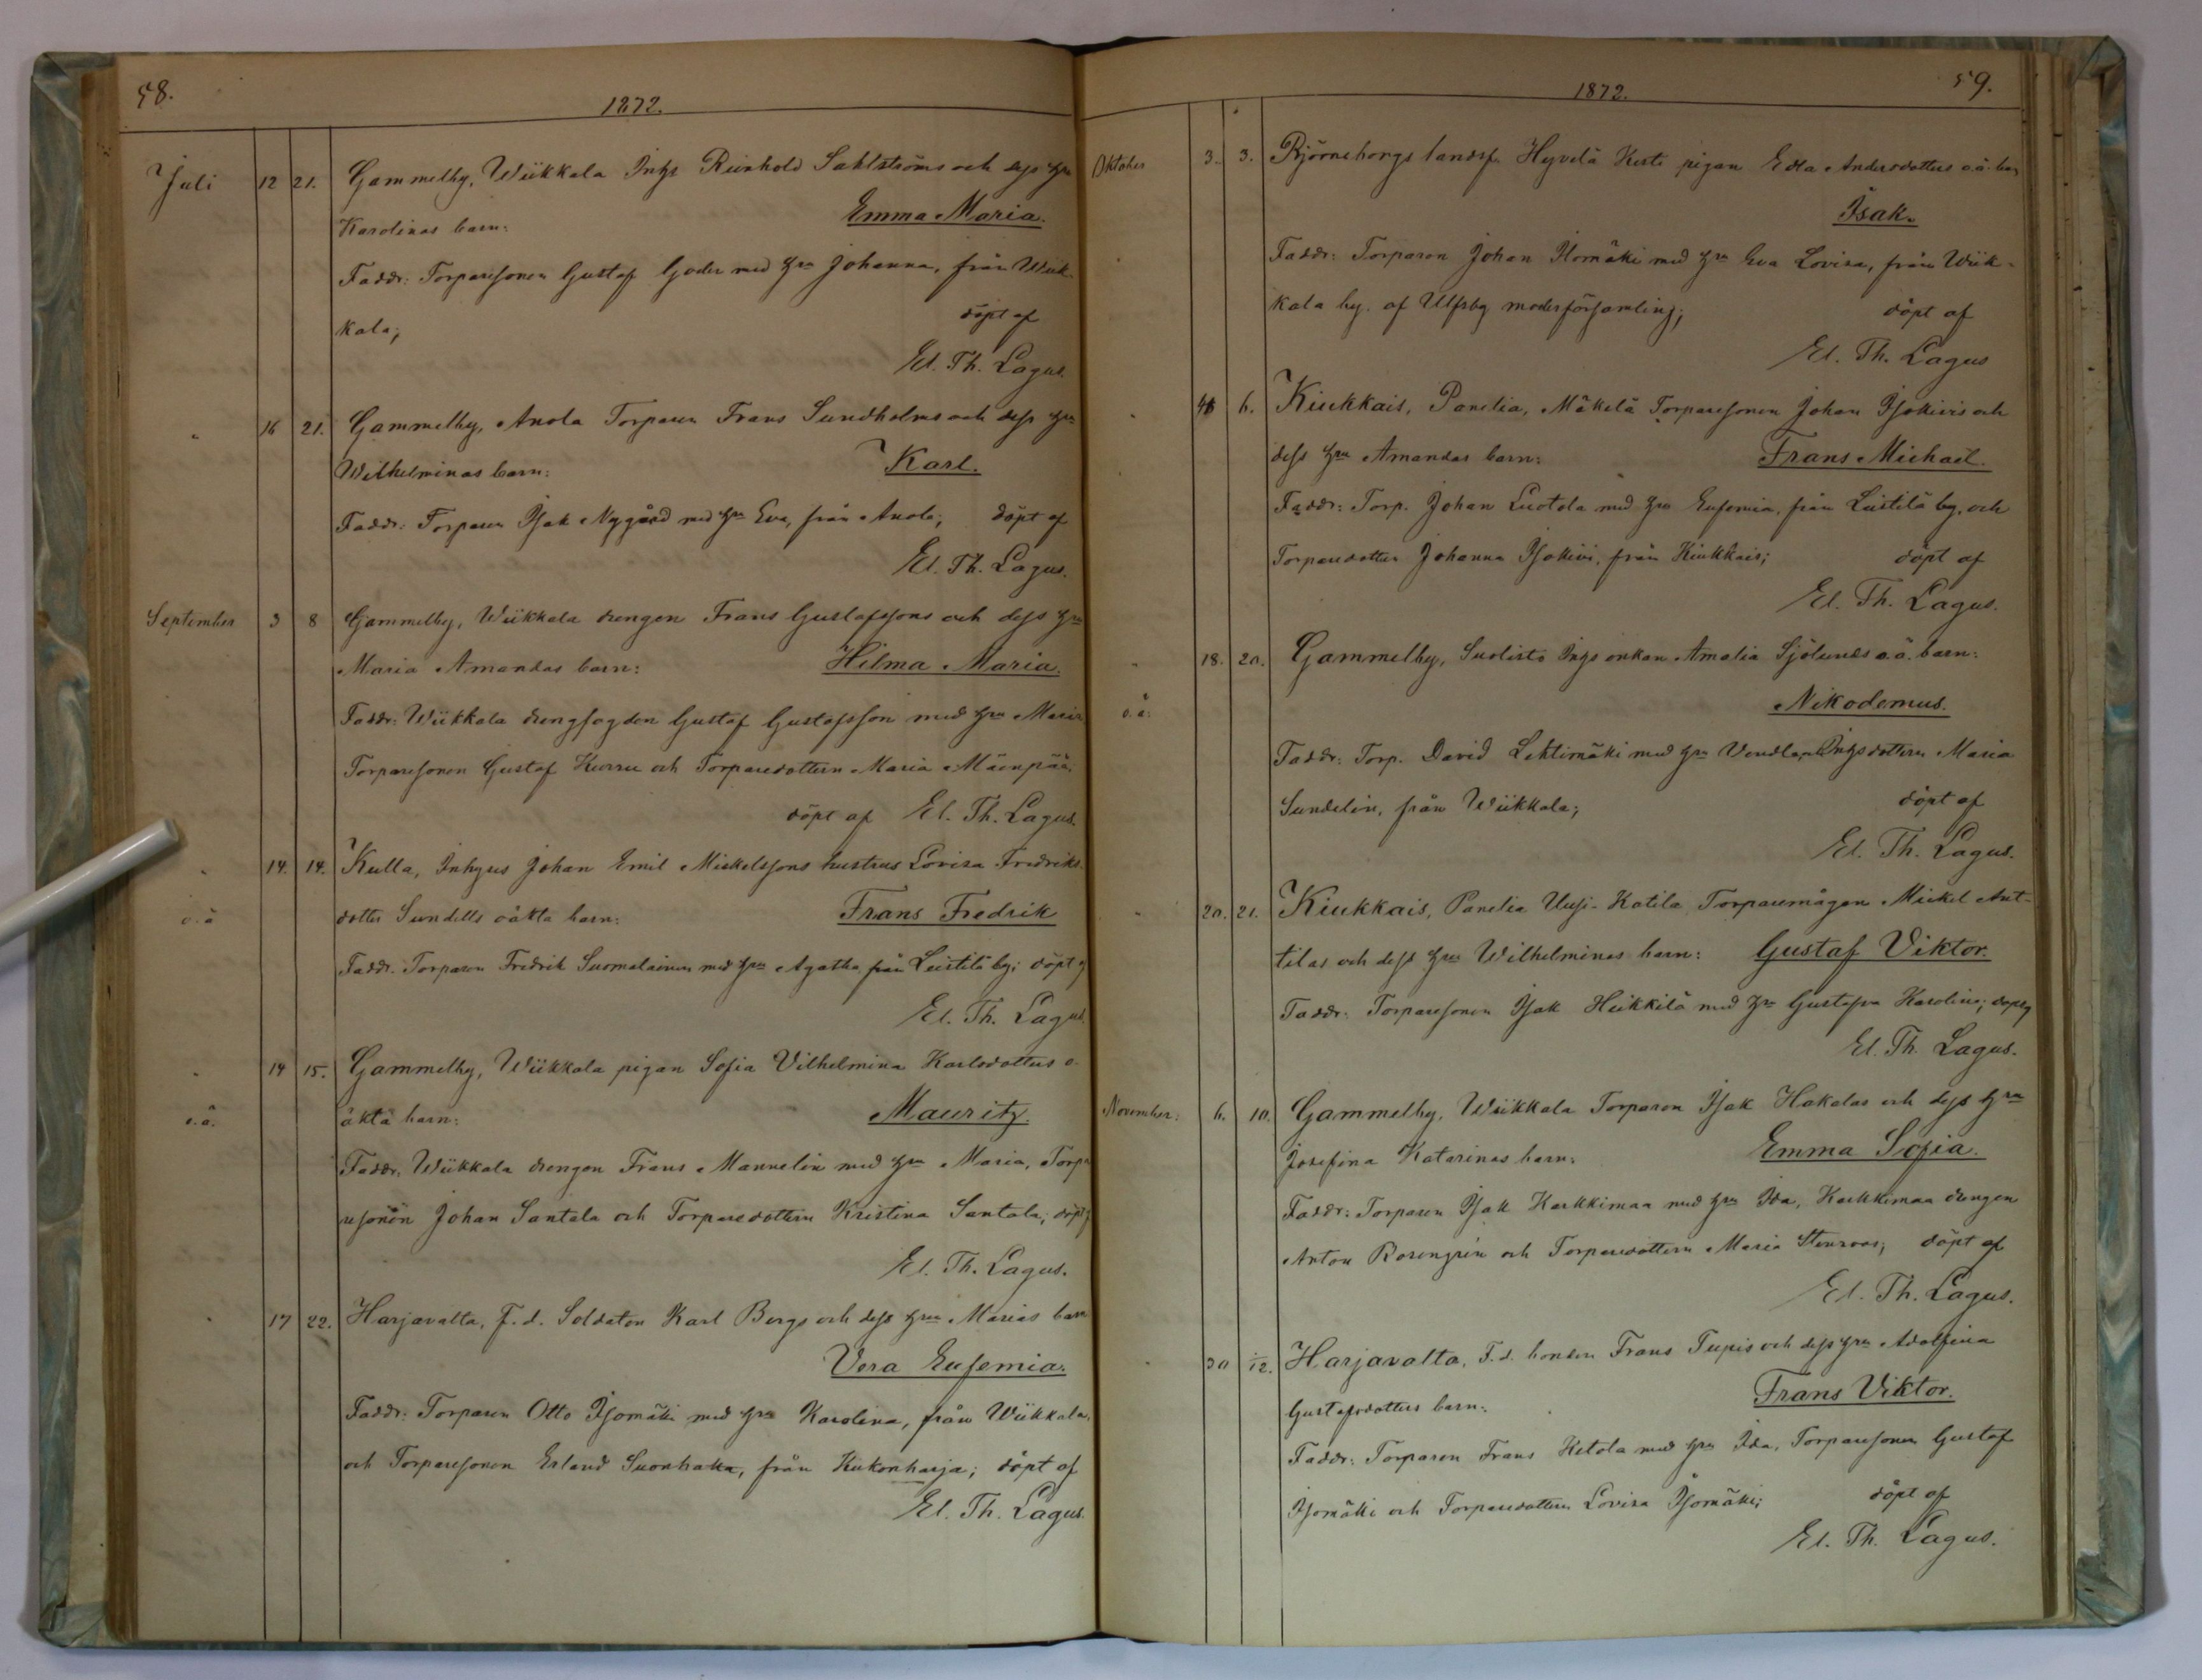 58.
1872.
Juli 12 21. Gammelby, Wiikkala Inhs Reinhold Sahlströms och dess hru
Karolinas barn: Emma Maria.
Faddr: Torparesonen Gustaf Goder med hru Johanna, från Wiik-
kala; döpt af
El. Th. Lagus.
" 16 21. Gammelby, Anola Torparen Frans Sundholms och dess hru
Wilhelminas barn: Karl.
Faddr: Torparen Isak Nygård med hru Eva, från Anola; döpt af
El. Th. Lagus.
September 3 8 Gammelby, Wiikkala drengen Frans Gustafssons och dess hru
Maria Amandas barn: Hilma Maria.
Faddr: Wiikkala drengfogden Gustaf Gustafsson med hru Maria
Torparesonen Gustaf Kurru och Torparedottern Maria Mäenpää.
döpt af El. Th. Lagus.
" 14. 14. Kulla, Inhyses Johan Emil Mickelssons hustrus Lovisa Fredriks-
o.ä dotter Sundells oäkta barn: Frans Fredrik
Faddr. Torparen Fredrik Suomalainen med hru Agatha från Leistilä by; döpt af
El. Th. Lagus.
" 14 15. Gammelby, Wiikkala pigan Sofia Vilhelmina Karlsdotters o-
o.ä. äkta barn: Mauritz.
Faddr. Wiikkala drengen Frans Mannelin med hru Maria, Torpa-
resonen Johan Santala och Torparedottern Kristina Santala; döpt af
El. Th. Lagus.
" 17 22. Harjavalta, F.d. Soldaten Karl Bergs och dess hru Marias barn
Vera Eufemia.
Faddr: Torparen Otto Isomäki med hru Karolina, från Wiikkala,
och Torparesonen Erland Suonhaka, från Kukonharja; döpt af
El. Th. Lagus.
59.
1872.
Oktober 3. 3. Björneborgs landsf. Hyvelä Kerti pigan Edla Andersdotters o.ä. barn
Isak.
Faddr: Torparen Johan Ilomäki med hru Eva Lovisa, från Wiik-
kala by. af Ulfsby moderförsamling; döpt af
El. Th. Lagus
" 6. Kiukkais, Panelia, Mäkelä Torparesonen Johan Isokivis och
dess hru Amandas barn: Frans Michael.
Faddr: Torp. Johan Luotola med hru Eufemia, från Leistilä by, och
Torparedottern Johanna Isokivi, från Kiukkais; döpt af
El. Th. Lagus.
" 18. 20. Gammelby, Suolisto Inhs enkan Amalia Sjölunds o.ä. barn:
o.ä: Nikodemus.
Faddr: Torp. David Lehtimäki med hru Vendla, Inhsdottern Maria
Sundelin, från Wiikkala; döpt af
El. Th. Lagus.
" 20. 21. Kiukkais, Panelia Uusi-Katila Torparemågen Mickel Ant-
tilas och dess hru Wilhelminas barn: Gustaf Viktor.
Faddr: Torparesonen Isak Heikkilä med hru Gustafva Karolina; döpt af
El. Th. Lagus.
November: 6. 10. Gammelby, Wiikkala Torparen Isak Hakalas och dess hru
Josefina Katarinas barn: Emma Sofia.
Faddr: Torparen Isak Karkkimaa med hru Ida, Karkkimaa drengen
Anton Rosengrén och Torparedottern Maria Stenroos; döpt af
El. Th. Lagus.
" 30 1/12. Harjavalta, F.d. bonden Frans Tupis och dess hru Adolfina
Gustafsdotters barn: Frans Viktor.
Faddr: Torparen Frans Ketola med hru Ida, Torparesonen Gustaf
Isomäki och Torparedottern Lovisa Isomäki; döpt af
El. Th. Lagus.